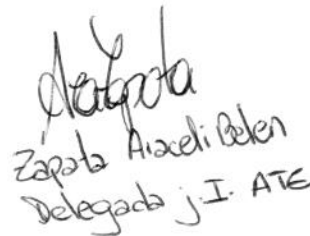 Zapata Araceli Belen
Delegada j. I. ATE